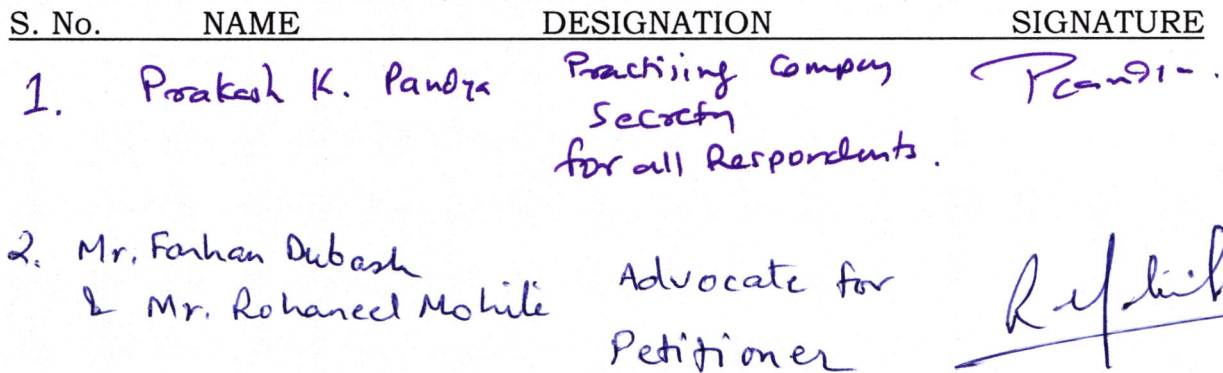 S. No. NAME DESIGNATION SIGNATURE
1. Prakash K. Pandya Practising Company
Secretary
for all Respondents.
2. Mr. Farhan Dubash
& Mr. Rohaneel Mohile Advocate for
Petitioner